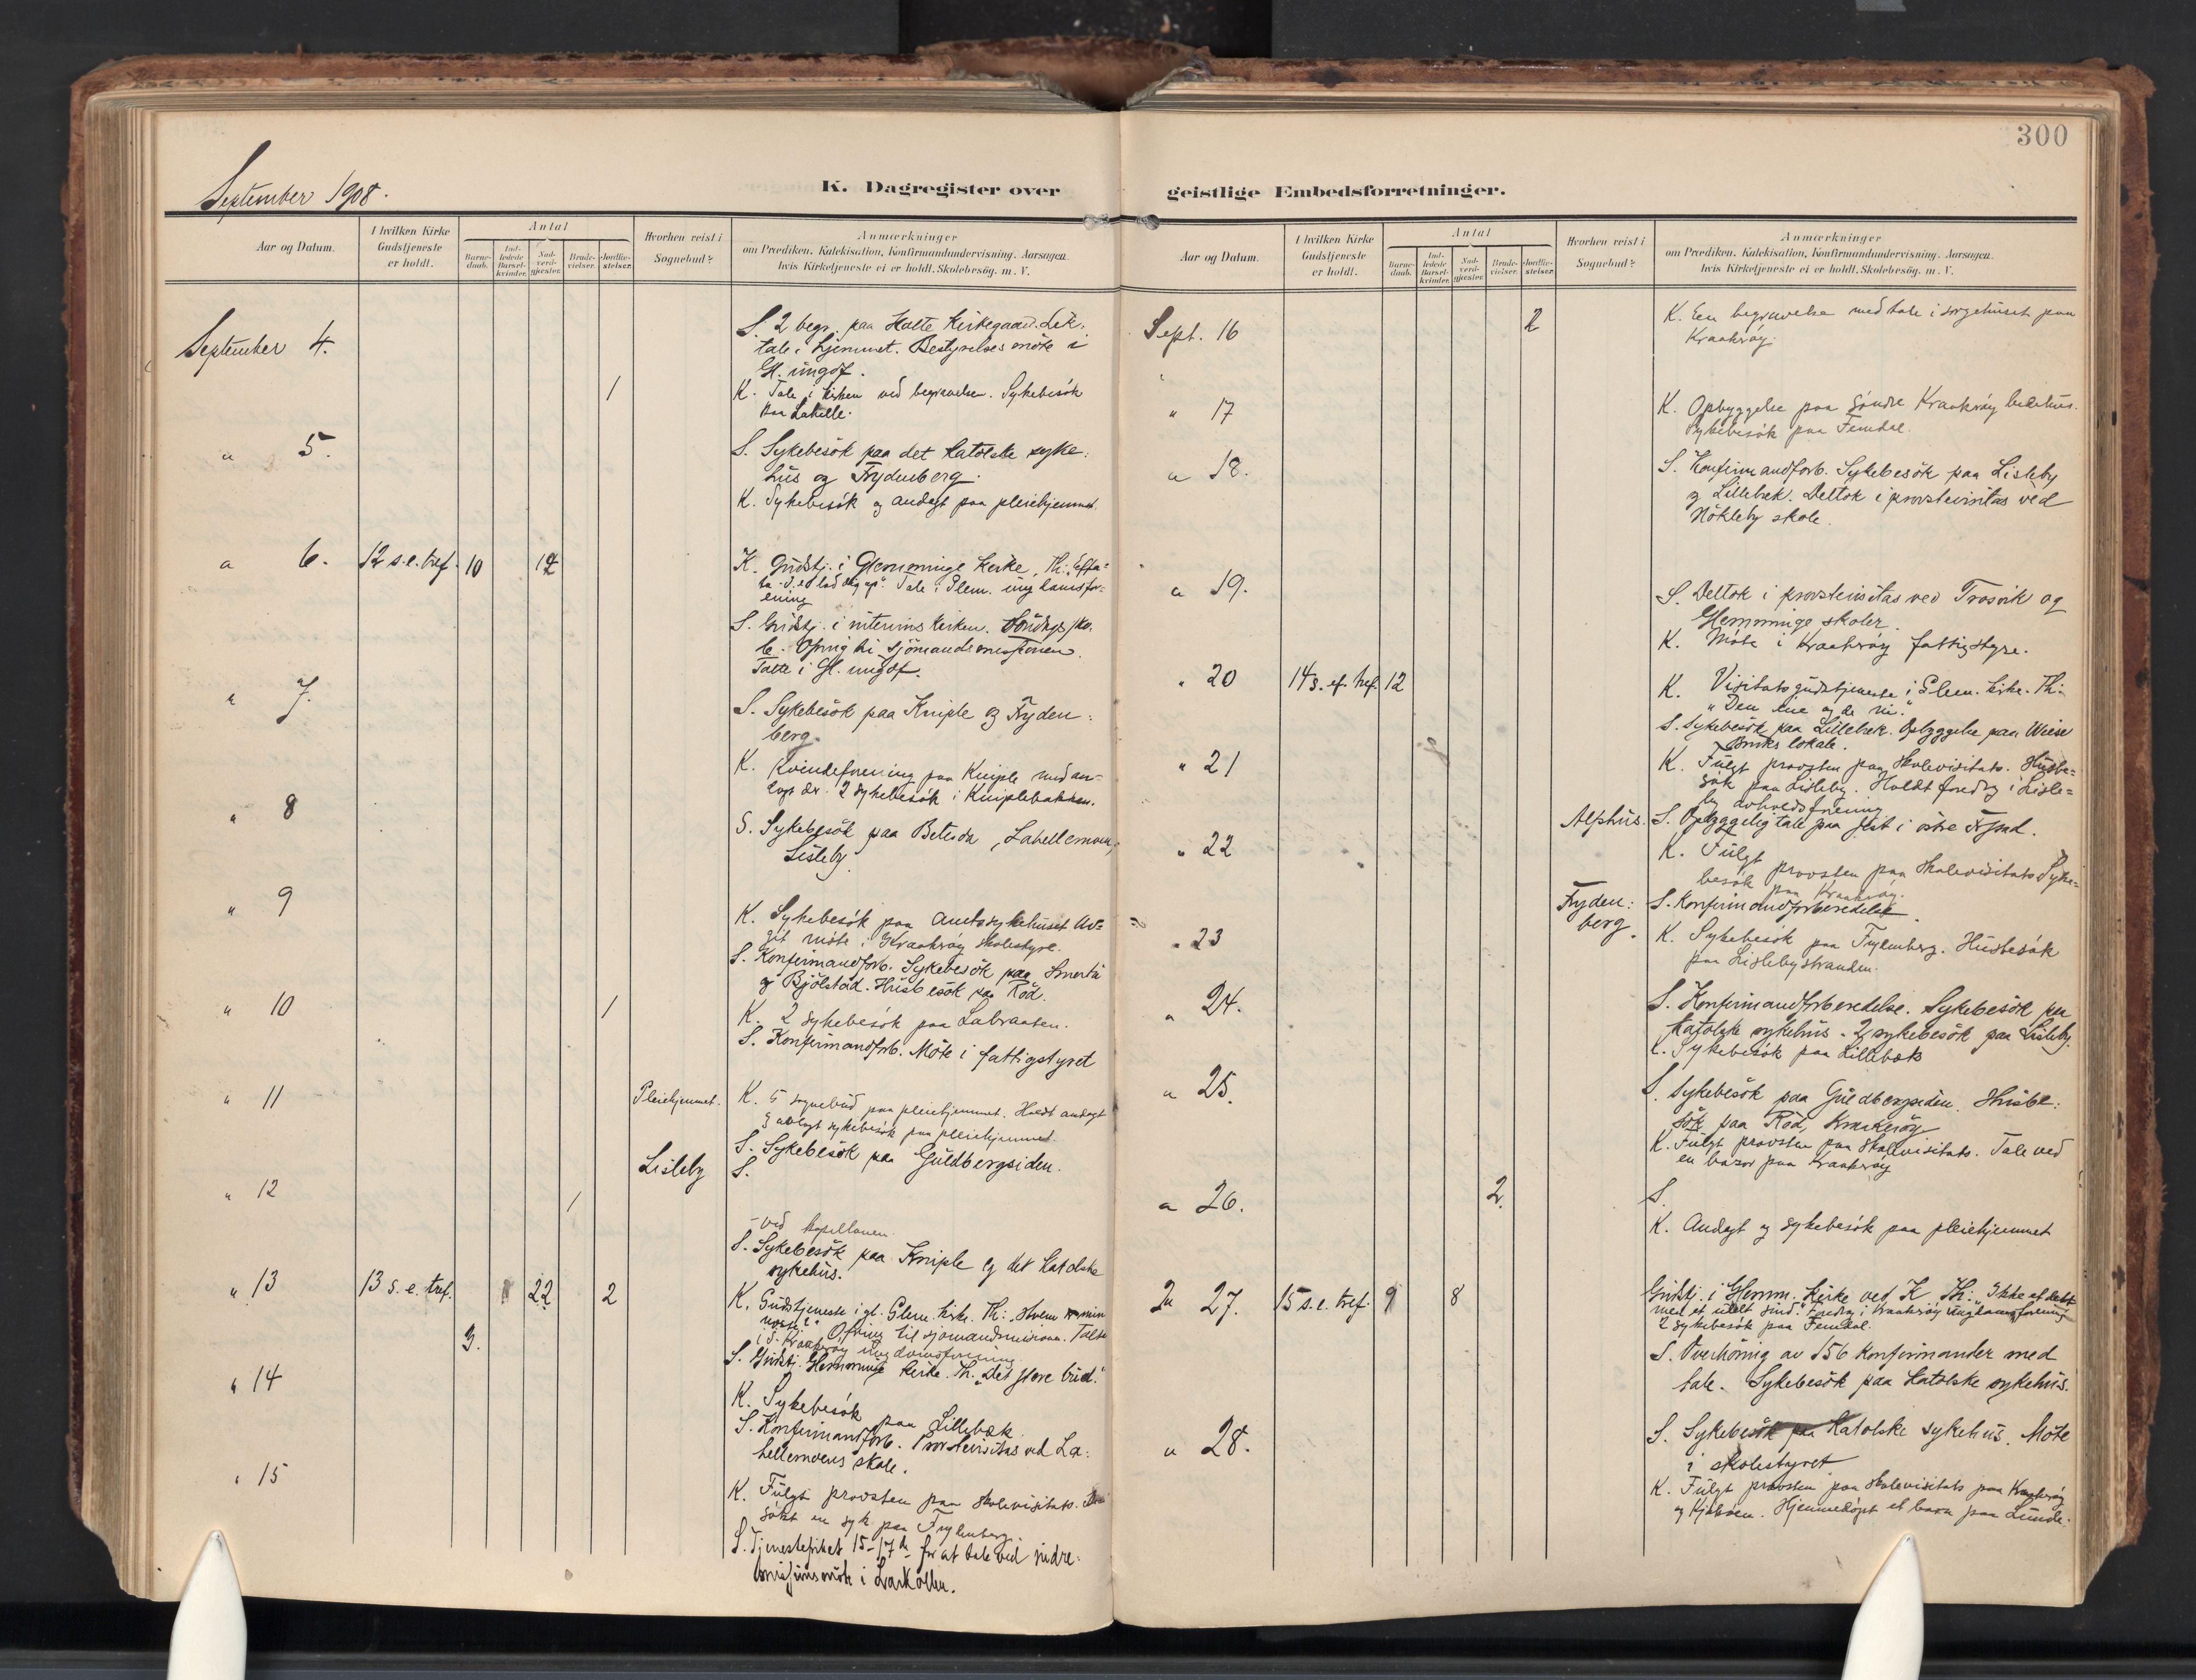 300
September 1908.
K. Dagregister over
geistlige Embedsforretninger.
Aar og Datum.
I hvilken Kirke Gudstjeneste er holdt.
Antal
Barne-daab.
Ind-ledede Barsel-kvinder.
Nad-verd-gjæster.
Brude-vielser.
Jordfæ-stelser.
Hvorhen reist i Sognebud?
Anmærkninger
om Prædiken. Katekisation, Konfirmandundervisning. Aarsagen.
hvis Kirketjeneste ei er holdt. Skolebesøg. m. V.
September 4.
S. 2 begr. paa Holte Kirkegaard. Lik.
tale i hjemmet. Bestyrelsesmöte i
Gl. ungdf.
1
K. Tale i kirken ved begravelsen. Sykebesök
paa Lahelle.
" 5.
S. Sykebesök paa det katolske syke:
hus og Frydenberg.
K. Sykebesök og andagt paa pleiehjemmet.
" 6. 12 s.e.tref. 10
K. Gudstj. i Glemminge Kirke, Th: "Effa=
ta - d.e. lad dig op". Tale i Glem. ungdomsfor=
ening
S. Gudstj. i interimskirken. Söndagssko.
Ofring til Sjömandsmissionen.
Talte i Gl. ungdf.
" 7.
S. Sykebesök paa Kniple og Fryden:
berg.
K. Kvindeforening paa Kniple med an=
dagt der. 2 sykebesök i Kniplebakken.
" 8
S. Sykebesök paa Betesda, Lahellemoen,
Lisleby.
" 9
K. Sykebesök paa Amtssykehuset Av=
git möte i Kraakeröy skolestyre.
S. Konfirmandforb. Sykebesök paa Smertu
og Bjölstad. Husbesök paa Röd.
" 10 1
K. 2 sykebesök paa Labraaten.
S. Konfirmandforb. Möte i fattigstyret
" 11 Pleiehjemmet.
K. 5 sognebud paa pleiehjemmet. Holdt andagt
& avlagt sykebesök paa pleiehjemmet.
S. Sykebesök paa Guldbergsiden.
" 12 1 Lisleby
S.
- ved kapellanen.
S. Sykebesök paa Kniple og det katolske
sykehus.
" 13 13 s.e.tref. 22 2
3.
K. Gudstjeneste i gl. Glem. kirke. Th: "Hvem er min
næste?" Ofring til sjömandsmissionen. Talte
i S. Kraakeröy ungdomsforening
S. Gudstj. Glemminge kirke. Th. "Det store bud."
" 14
K. Sykebesök paa Lillebæk
S. Konfirmandforb. Provstevisitas ved La:
hellemoens skole.
" 15
K. Fulgt provsten paa skolevisitats.
sökt en syk paa Frydenberg.
S. Tjenestefrihet 15-17de for at tale ved indre=
missionsmöte i Larkollen.
Aar og Datum.
I hvilken Kirke Gudstjeneste er holdt.
Antal
Barne-daab.
Ind-ledede Barsel-kvinder.
Nad-verd-gjæster.
Brude-vielser.
Jordfæ-stelser.
Hvorhen reist i Sognebud?
Anmærkninger
om Prædiken. Katekisation, Konfirmandundervisning. Aarsagen.
hvis Kirketjeneste ei er holdt. Skolebesøg. m. V.
Sept. 16 2
K. Een begravelse med tale i sorgehuset paa
Kraakeröy.
" 17
K. Opbyggelse paa Söndre Kraakeröy bedehus.
Sykebesök paa Femdal.
" 18.
S. Konfirmandforb. Sykebesök paa Lisleby
og Lillebæk. Deltok i provstevisitas ved
Nökleby skole.
" 19.
S. Deltok i provstevisitas ved Trosvik og
Glemminge skoler.
K. Möte i Kraakeröy fattigstyre.
" 20 14 s. ef. tref. 12
K. Visitatsgudstjeneste i Glem. kirke. Th:
"Den ene og de ni."
S. Sykebesök paa Lillebæk. Opbyggelse paa Wiese
Bruks lokale.
" 21
K. Fulgt provsten paa skolevisitats. Husbe=
sök paa Lisleby. Holdt foredrag i Lisle=
by avholdsforening
Alphus. S. Opbyggelig tale paa fest i östre Frstad.
" 22
K. Fulgt provsten paa skolevisitats Syke=
besök paa Kraakeröy.
Fryden:
berg.
S. Konfirmandforberedelse.
" 23
K. Sykebesök paa Frydenberg. Husbesök
paa Lislebystranden.
" 24.
S. Konfirmandforberedelse. Sykebesök paa
katolske sykehus. 2 sykebesök paa Lisleby.
K. Sykebesök paa Lillebæk
" 25.
S. Sykebesök paa Guldbergsiden. Husbe:
sök paa Röd, Kraakeröy
K. Fulgt provsten paa skolevisitats. Tale ved
en bazar paa Kraakeröy
" 26. 2.
S.
K. Andagt og sykebesök paa pleiehjemmet
" 27. 15 s.e. tref. 9 8
Gudstj. i Glemm. Kirke ved K. Th: "Ikke et delt
men et udelt sind." Foredrag i Kraakeröy ungdomsforening
2 sykebesök paa Femdal.
S. Overhöring av 156 konfirmander med
tale. Sykebesök paa katolske sykehus.
" 28.
S. Sykebesök paa Katolske sykehus. Möte
i skolestyret
K. Fulgt provsten paa skolevisitats paa Kraakeröy
og Kjøkøen. Hjemmedöpt et barn paa Lunde.